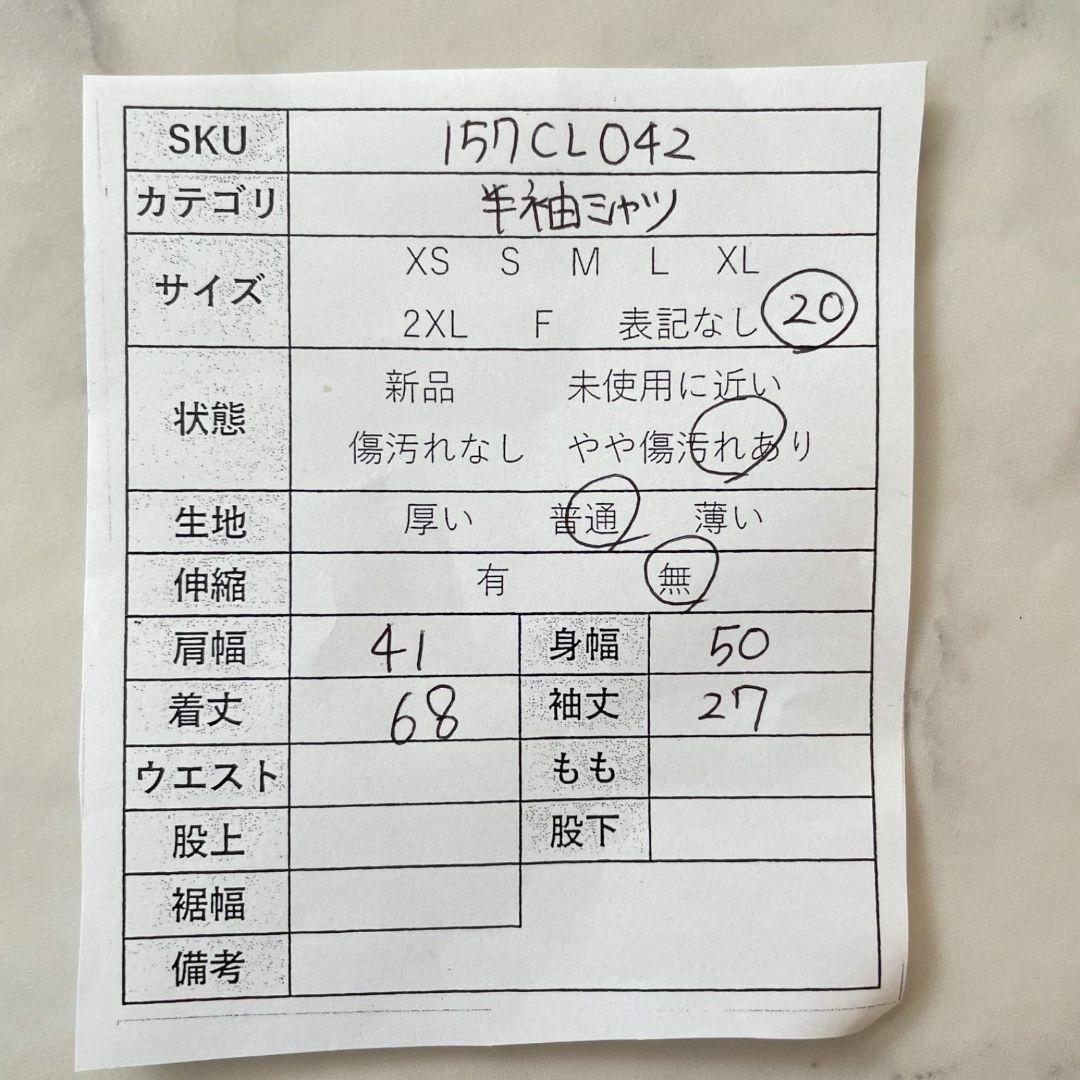 SKU 157CL042
カテゴリ 半袖シャツ
サイズ XS S M L XL
2XL F 表記なし 20
状態 新品 未使用に近い
傷汚れなし やや傷汚れあり
生地 厚い 普通 薄い
伸縮 有 無
肩幅 41 身幅 50
着丈 68 袖丈 27
ウエスト もも
股上 股下
裾幅
備考